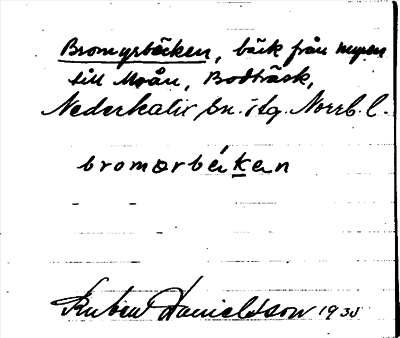 Bromyrbäcken, bäck från myren
till Moån, Bodträsk,
Nederkalix sn. Norrb. l.
bromarbékan
Ruben Danielsson 193